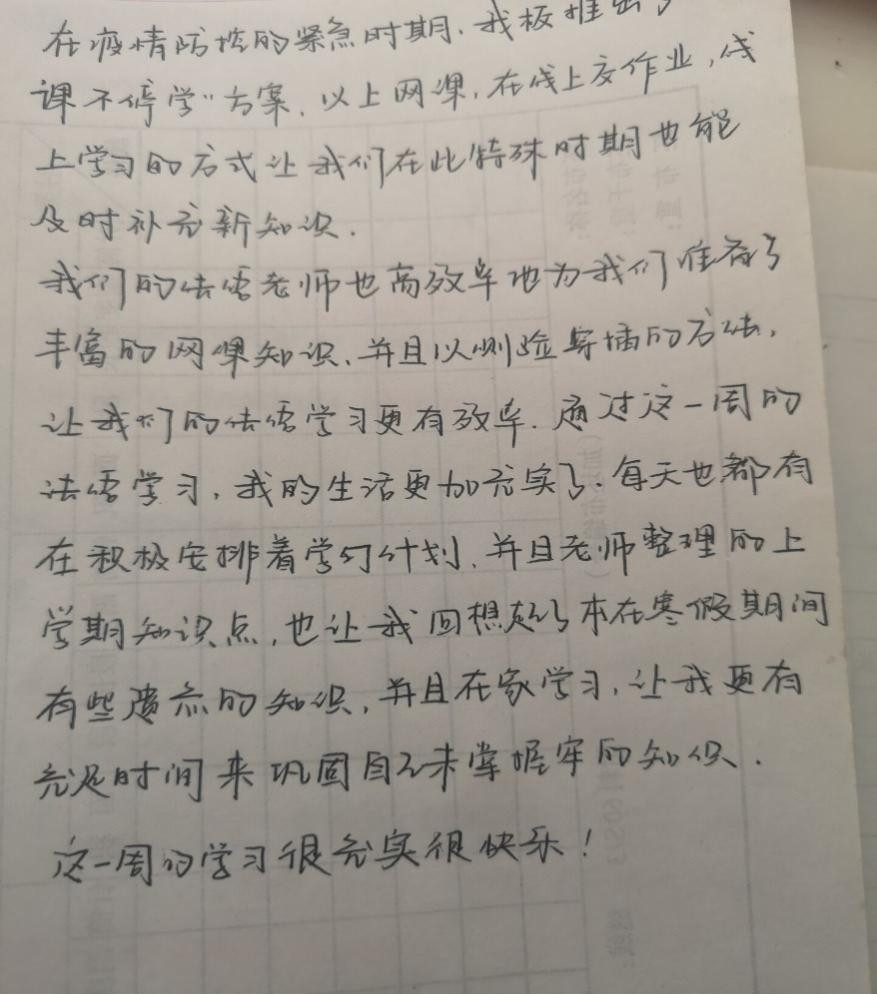 在疫情防控的紧急时期.我校推出了
课不停学"方案.以上网课.在线上交作业,线
上学习的方式让我们在此特殊时期也能
及时补充新知识.
我们的法语老师也高效率地为我们准备了
丰富的网课知识.并且以测验穿插的方法,
让我们的法语学习更有效率.通过这一周的
法语学习,我的生活更加充实了.每天也都有
在积极安排着学习计划.并且老师整理的上
学期知识点,也让我回想起了本在寒假期间
有些遗忘的知识,并且在家学习,让我更有
充足时间来巩固自己未掌握牢的知识.
这一周的学习很充实很快乐!